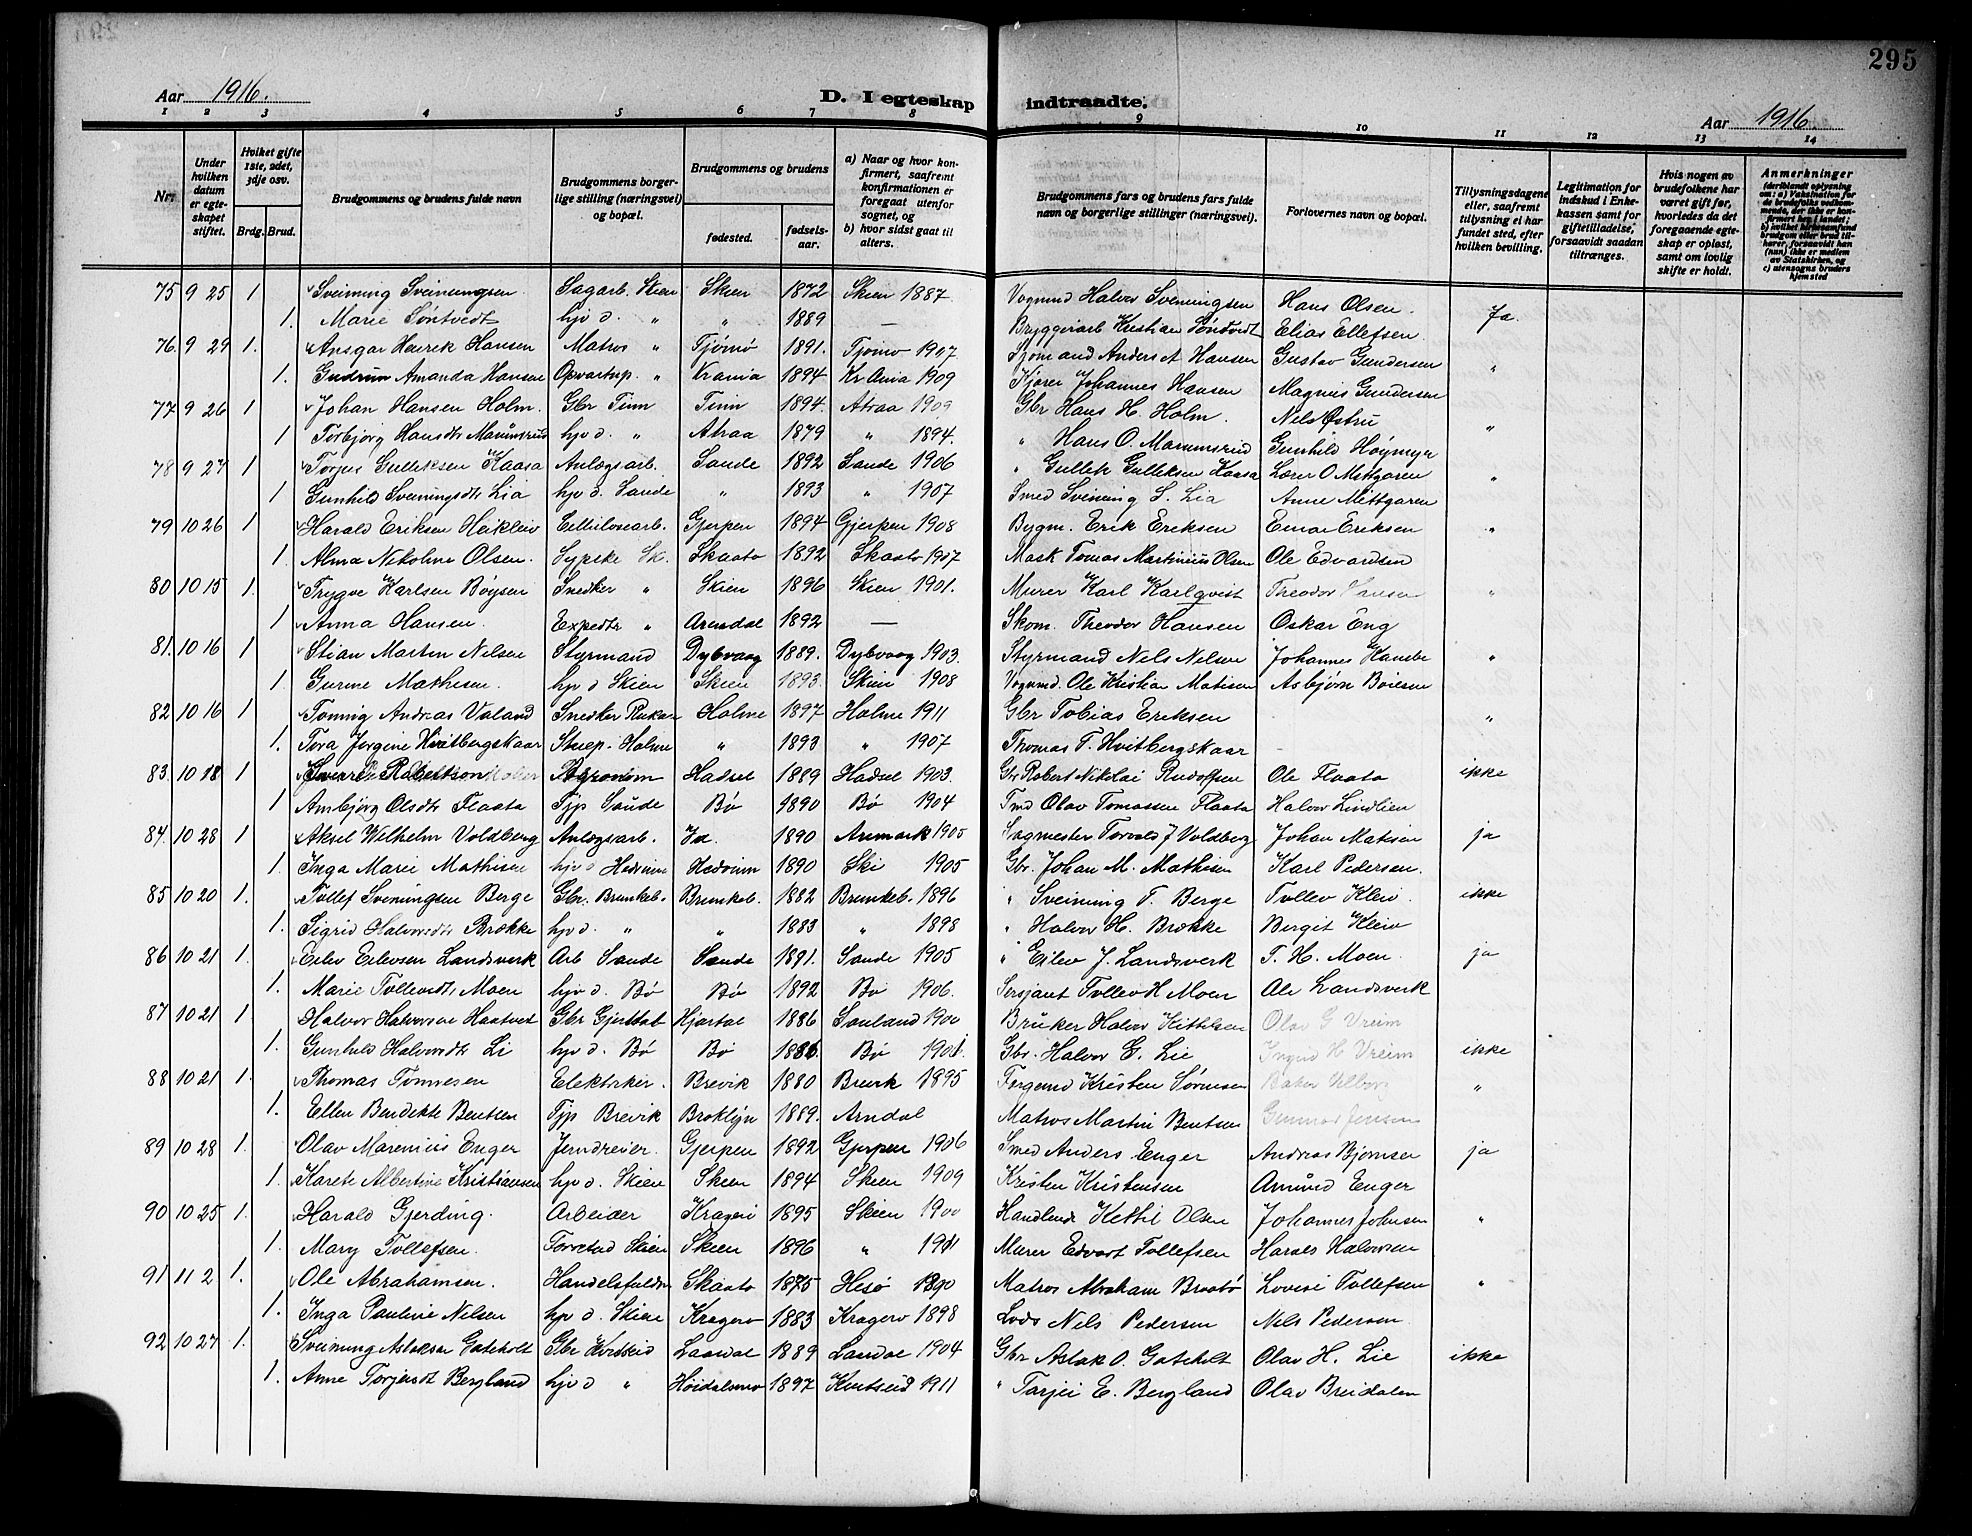 295
Aar 1916. D. I egteskap indtraadte. Aar 1916
1 2 3 4 5 6 7 8 9 10 11 12 13 14
Nr. | Under hvilken datum er egteskapet stiftet. | Hvilket gifte 1ste, 2det, 3dje osv. Brdg. Brud. | Brudgommens og brudens fulde navn | Brudgommens borgerlige stilling (næringsvei) og bopæl. | Brudgommens og brudens fødested. fødselsaar. | a) Naar og hvor konfirmert, saafremt konfirmationen er foregaat utenfor sognet, og b) hvor sidst gaat til alters. | Brudgommens fars og brudens fars fulde navn og borgerlige stillinger (næringsvei). | Forlovernes navn og bopæl. | Tillysningsdagene eller, saafremt tillysning ei har fundet sted, efter hvilken bevilling. | Legitimation for indskud i Enkekassen samt for giftetilladelse, forsaavidt saadan tiltrænges. | Hvis nogen av brudefolkene har været gift før, hvorledes da det foregaaende egteskap er opløst, samt om lovlig skifte er holdt. | Anmerkninger
75 9 25 1 Sveinung Sveinungsen Sagarb. Skien Skien 1872 Skien 1887 Vognmd Halvor Sveningsen Hans Olsen. Ja.
1. Marie Søntvedt hjv d. " " 1889 — Bryggeriarb Kristian Søndvedt Elias Ellefsen
76. 9 29 1. Ansgar Henrik Hansen Matros " Tjømø 1891. Tjømø 1907 Sjømand Anders A Hansen Gustav Gundersen "
1. Gudrun Amanda Hansen Opvartnp. " Krania 1894 Kr Ania 1909 Kjører Johannes Hansen Magnus Gundersen
77 9 26 1 Johan Hansen Holm. Gbr Tinn Tinn 1894. Atraa 1909 Gbr Hans H. Holm. Nils Østru "
1 Torbjørg Hansdtr Marumsrud hjv d. " Atraa 1879 " 1894. " Hans O. Marumsrud Gunhild Høymyr
78 9 27 1 Torjus Gulleksen Kaasa Anlægsarb. Saude 1892 Saude 1906 " Gullek Gulleksen Kaasa Lærer O Mittgaren "
1 Gunhild Sveinungsdtr Lia hjv d. Saude " 1893 " 1907 Smed Sveinung S. Lia Anne Mittgaren
79 10 26 1 Harald Eriksen Heikleiv Cellulosearb. Gjerpen 1894 Gjerpen 1908 Bygm. Erik Eriksen Einar Eriksen "
1. Alma Nikoline Olsen. Sypike Sk. Skaato 1892 Skaato 1907 Mask Tomas Martinius Olsen Ole Edvardsen
80 10 15 1. Trygve Karlsen Bøysen Snedker " Skien 1896 Skien 1901. Murer Karl Karlqvist Theodor Hansen "
1 Anna Hansen. Expedtr " Arendal 1892 — Skom. Theodor Hansen Oskar Eng
81. 10 16 1 Stian Martin Nilsen Styrmand Dybvaag 1889. Dybvaag 1903. Styrmand Nils Nilsen Johannes "
1. Gurine Mathisen. hjv d Skien Skien 1893. Skien 1908 Vognmd. Ole Kristian Matisen Asbjørn Boiesen
82 10 16 1 Tønnig Andreas Valand Snedker Rukan Holme 1897 Holme 1911 Gbr Tobias Eriksen "
1. Tora Jørgine Hvitbergskaar Stuep. Holme " 1893 " 1907 Thomas T. Hvitbergskaar
83. 10 18 1 Robertson Agronom Hadsel 1889 Hadsel 1903. Gbr Robert Nikolai Rudolfsen Ole Flaata ikke
1 Ambjørg Olsdtr Flaata Tjp Saude Bø 1890 Bø 1904 Tmd Olav Tomassen Flaata Halvor Lindlien
84. 10 28 1 Aksel Wilhelm Voldberg Anlægsarb. Id. 1890 Aremark 1905 Sagmester Torvald J Voldberg Johan Matisen ja
1. Inga Marie Mathisen hjv d 1890 Ski 1905 Gbr. Johan M. Mathisen Karl Pedersen.
85 10 20 1. Tollef Sveningsen Berge Gbr. Brunkeb. Brunkeb. 1882 Brunkeb. 1896 " Sveinung T. Berge Tollev Kleiv. ikke
1. Sigrid Halvorsdtr Brække hjv d. " " 1883 " 1898 " Halvor H. Brække Bergit Kleiv
86 10 21 1. Eilev Eilevsen Landsverk Arb Saude Saude 1891. Saude 1905 " Eilev J. Landsverk T. H. Moen. ja
1. Marie Tollevsdtr Moen hjv d. Bø Bø 1892 Bø 1906. Sersjant Tollev H Moen Ole Landsverk
87 10 21 1. Halvor Halvorsen Haatveit Gbr Gjerstal Hjartal 1886 Sauland 1900 Bruker Halvor Kittilsen Olav G Vreim
1. Gunhild Halvorsdtr Li hjv d. Bø Bø 1886. Bø 1901. Gbr. Halvor E. Lie Ingrid H Vreim ikke
88 10 21 1. Thomas Tønnesen Elektriker. Brevik 1880 Brevik 1895 Færgemd Kristen Sørensen Baker "
1. Ellen Bendikte Bentsen Tjp Brevik Broklyn 1889. Arndal Matros Martin Bentsen Gunnar Jensen
89 10 28 1. Olav Marenius Enger Jerndreier. Gjerpen 1892 Gjerpen 1906 Smed Anders Enger Andreas Bjørnsen ja
1. Karete Albertine Kristiansen hjv d. Skien Skien 1894 Skien 1909 Kristen Kristensen Amund Enger
90 10 25 1. Harald Gjerding. Arbeider Kragerø 1895 Skien 1900 Handlende Kittil Olsen Johannes Johnsen "
1. Mary Tollefsen. Forretnd Skien Skien 1896 " 1911 Murer Edvart Tollefsen Harals Halvorsen
91 11 2 1. Ole Abrahamsen. Handelsfuldm Skaato 1875 Hesø 1890 Matros Abraham Braatø Lovise Tollefsen "
1. Inga Pauline Nilsen hjv d. Skien Kragerø 1883 Kragerø 1898 Lods Nils Pedersen Nils Pedersen
92 10 27 1. Sveinung Aslaksen Gateholt Gbr Kviteseid Laardal 1889 Laardal 1904 Gbr Aslak O. Gateholt Olav H. Lie ikke
1. Anne Torjusdt Bergland hjv d " Høidalsmo 1897 Kviteseid 1911 " Tarjei E. Bergland Olav Breidalen